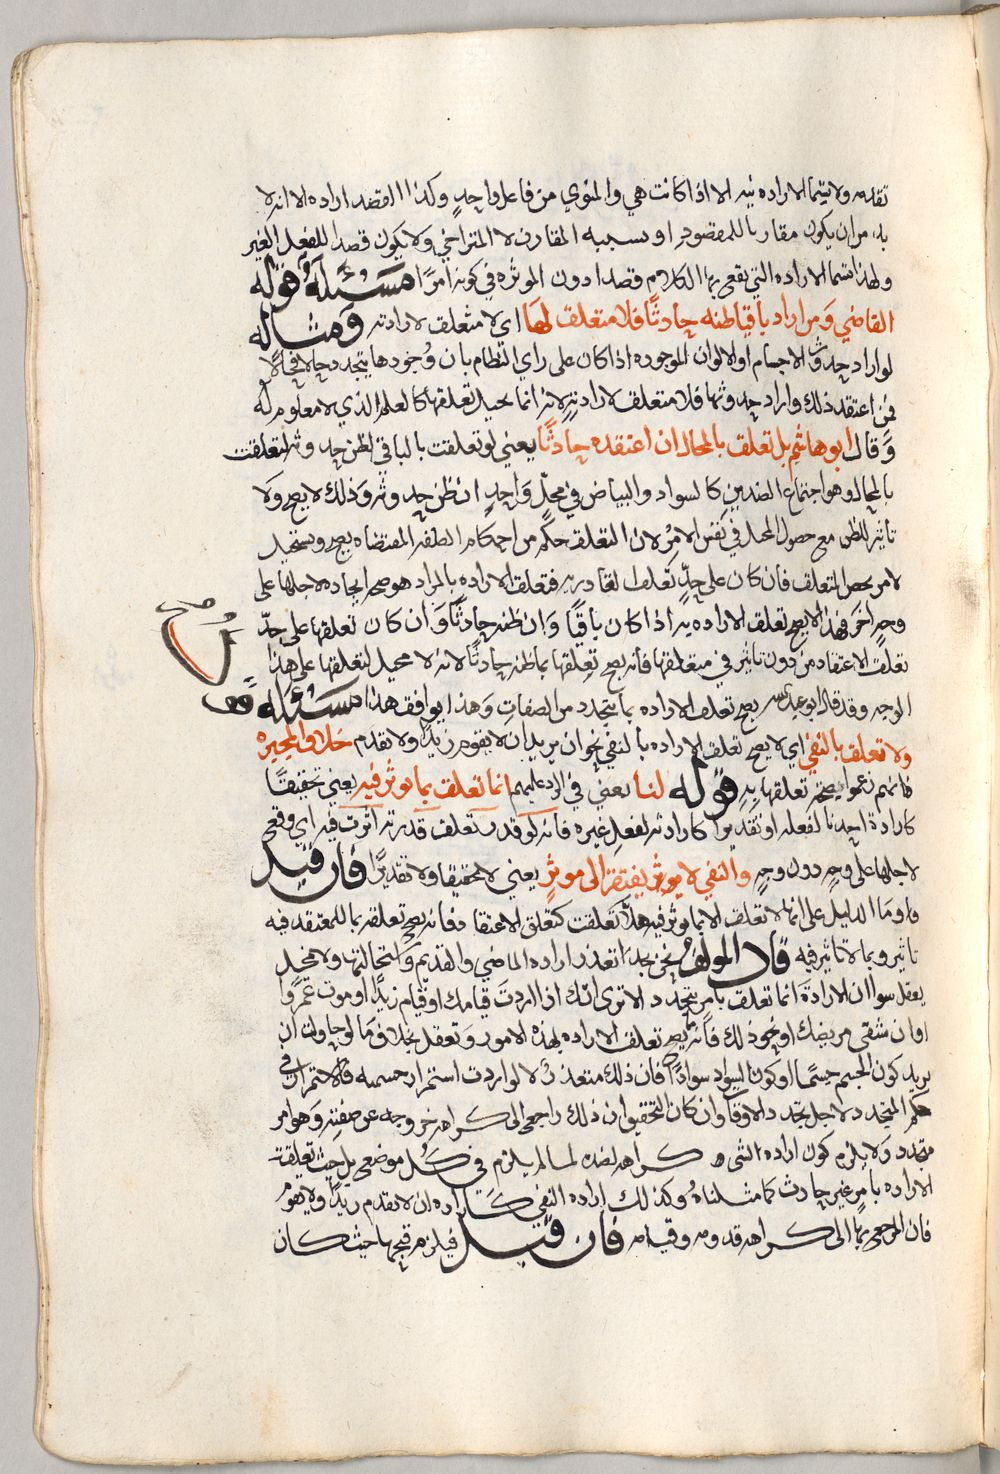 تقدمه ولا يتما الاراده نيه الا اذا كانت هي والمنوي من فاعل واحدٍ وكذا القصد اراده الا انه لا
بد من ان يكون مقارنا للمقصود او سببه المقارن لا المتراخي ولا يكون قصدا للفعل الغير
ولهذا تسما الاراده التي يقع بها الكلام قصدا دون الموثره في كونه امرًا مسئلة قوله
القاضي ومن اراد باقيا ظنه حادثًا فلا متعلق لها اي لا متعلق لارادته ومثاله
لو اراد حدوث الاجسام او الالوان الموجوده اذا كان على راي النظام بان وجودها يتجدد حالا فحالًا
فمن اعتقد ذلك واراد حدوثها فلا متعلق لارادته لانه انما يحيل تعلقها كالعلم الذي لا معلوم له
وقال ابو هاشم بل تعلق بالمحال ان اعتقده حادثًا يعني لو تعلقت بالباقي لظن حدوثه لتعلقت
بالمحال وهو اجتماع الضدين كالسواد والبياض في محلٍّ واحدٍ ان ظن حدوثه وذلك لا يصح ولا
تاثير للظن مع حصول المحل في نفس الامر لان التعلق حكم من احكام الصفه المقتضاه يصح ويستحيل
لامر يخص المتعلق فان كان على حدٍّ تعلق القادريه فتعلق الاراده بالمراد هو صحه ايجاده لاجلها على
وجهٍ اخر فهذا لا يصح تعلق الاراده به اذا كان باقيًا وان ظنه حادثًا وان كان تعلقها على حدّ
تعلق الاعتقاد من دون تاثير في متعلقها فانه يصح تعلقها بما ظنه حادثًا لانه لا محيل لتعلقها على هذا
الوجه وقد قال ابو عبدالله يصح تعلق الاراده بما يتجدد من الصفات وهذا يوافق هذا مسئلة
ولا تعلق بالنفي اي لا يصح تعلق الاراده بالنفي نحو ان يريد ان لا يقوم زيد ولا تقدم خلاف المجبره
فانهم زعموا صحه تعلقها به قوله لنا يعني في الرد عليهم انما تعلق بما توثر فيه يعني تحقيقًا
كارادة احدنا لفعله او تقديرًا كارادته لفعل غيره فانه لو قدر تعلق قدرته اثرت فيه اي وقع
لاجلها على وجهٍ دون وجهٍ والنفي لا يوثر يفتقر الى موثرٍ يعني لا تحقيقا ولا تقديرًا فان قيل
وما الدليل على انها لا تعلق الا بما توثر فيه هلا تعلقت كتعلق الاعتقاد فانه يصح تعلقه بما للمعتقد فيه
تاثير وبما لا تاثير فيه قال المولف نحن نجد تعذر اراده الماضي والقديم واستحالتها ولا محيل
يعقل سوا ان الارادة انما تعلق بامر يتجدد الا ترى انك اذا اردت قيامك او قيام زيدٍ او موت عمرٍو
او ان شفي مريضك او نحو ذلك فانه يصح تعلق الاراده بهذه الامور وتعقل بخلاف ما لو حاولت ان
يريد كون الجسم جسمًا او كون السواد سوادًا فان ذلك متعذر الا لو اردت استمرار جسمه فالاستمرار في
حكم المتجدد لاجل تجدد الاوقات وان كان التحقيق ان ذلك راجع الى كراهه خروجه عن صفته وهو امر
متجدد ولا يلزم كون اراده الشيء كراهه لضده لما لم يلزم في كل موضع بل حيث تعلقت
الاراده بامر غير حادث كما مثلناه وكذلك اراده النفي كاراده ان لا تقدم زيد ولا يقوم
فان المرجع بها الى كراهه قدومه وقيامه فان قيل فيلزم قبحها حيث كان